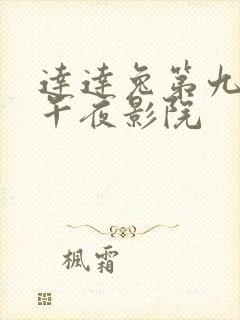 達達兔第九
午夜影院
楓霜